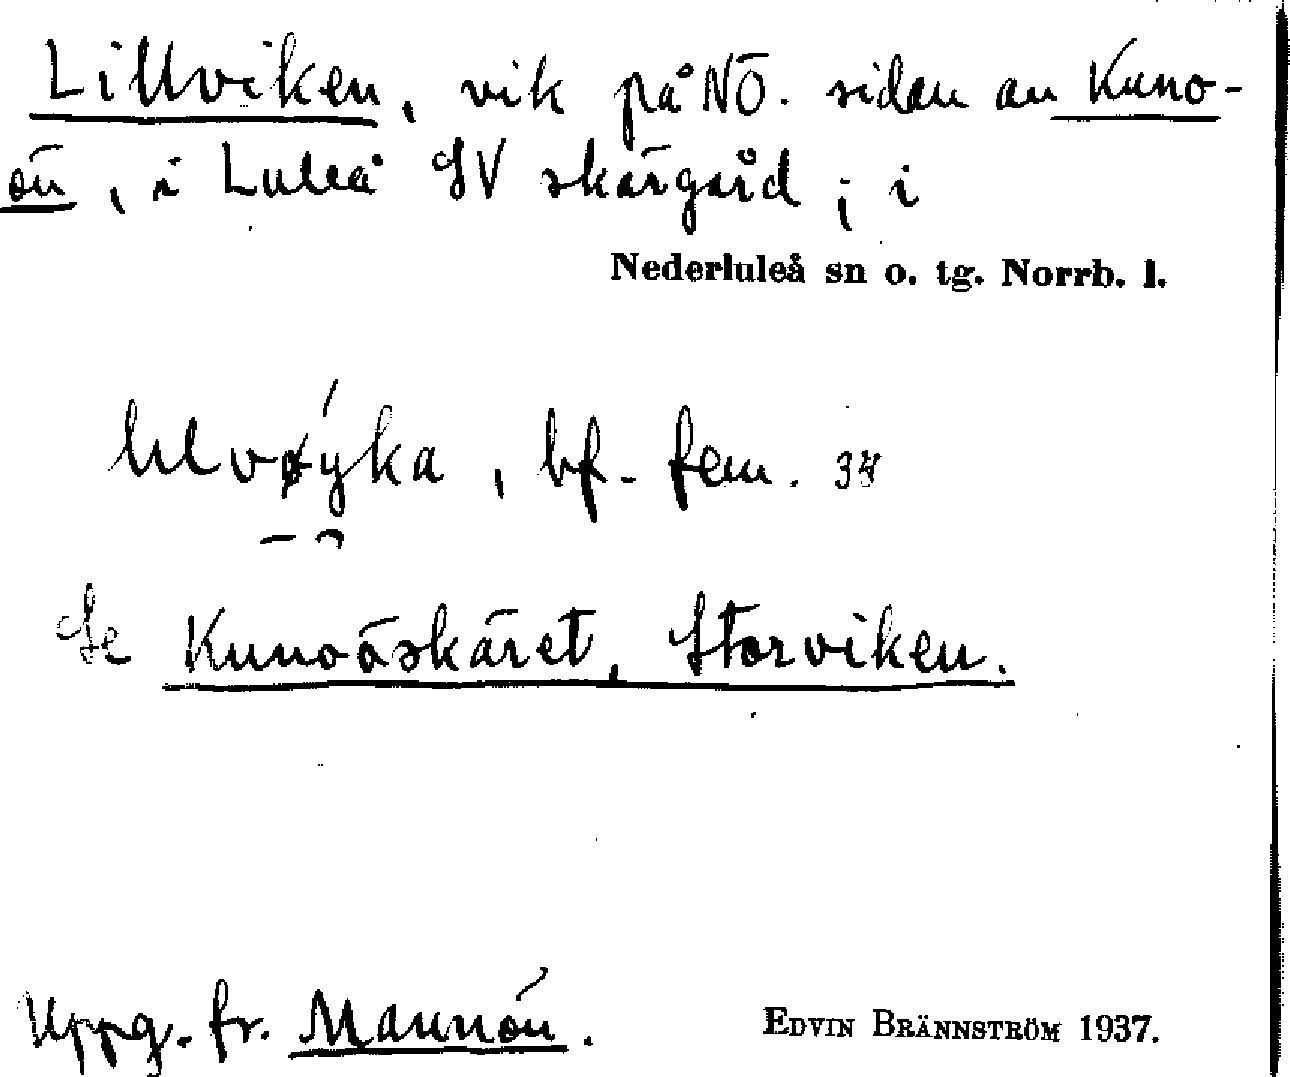 Lillviken, vik på NÖ. sidan av Kuno-
ön, i Luleå SV skärgård; i
Nederluleå sn o. tg. Norrb. l.
bf. fem. 34
Se Kunoöskäret, Storviken.
Uppg. fr. Mannön.
EDVIN BRÄNNSTRÖM 1937.